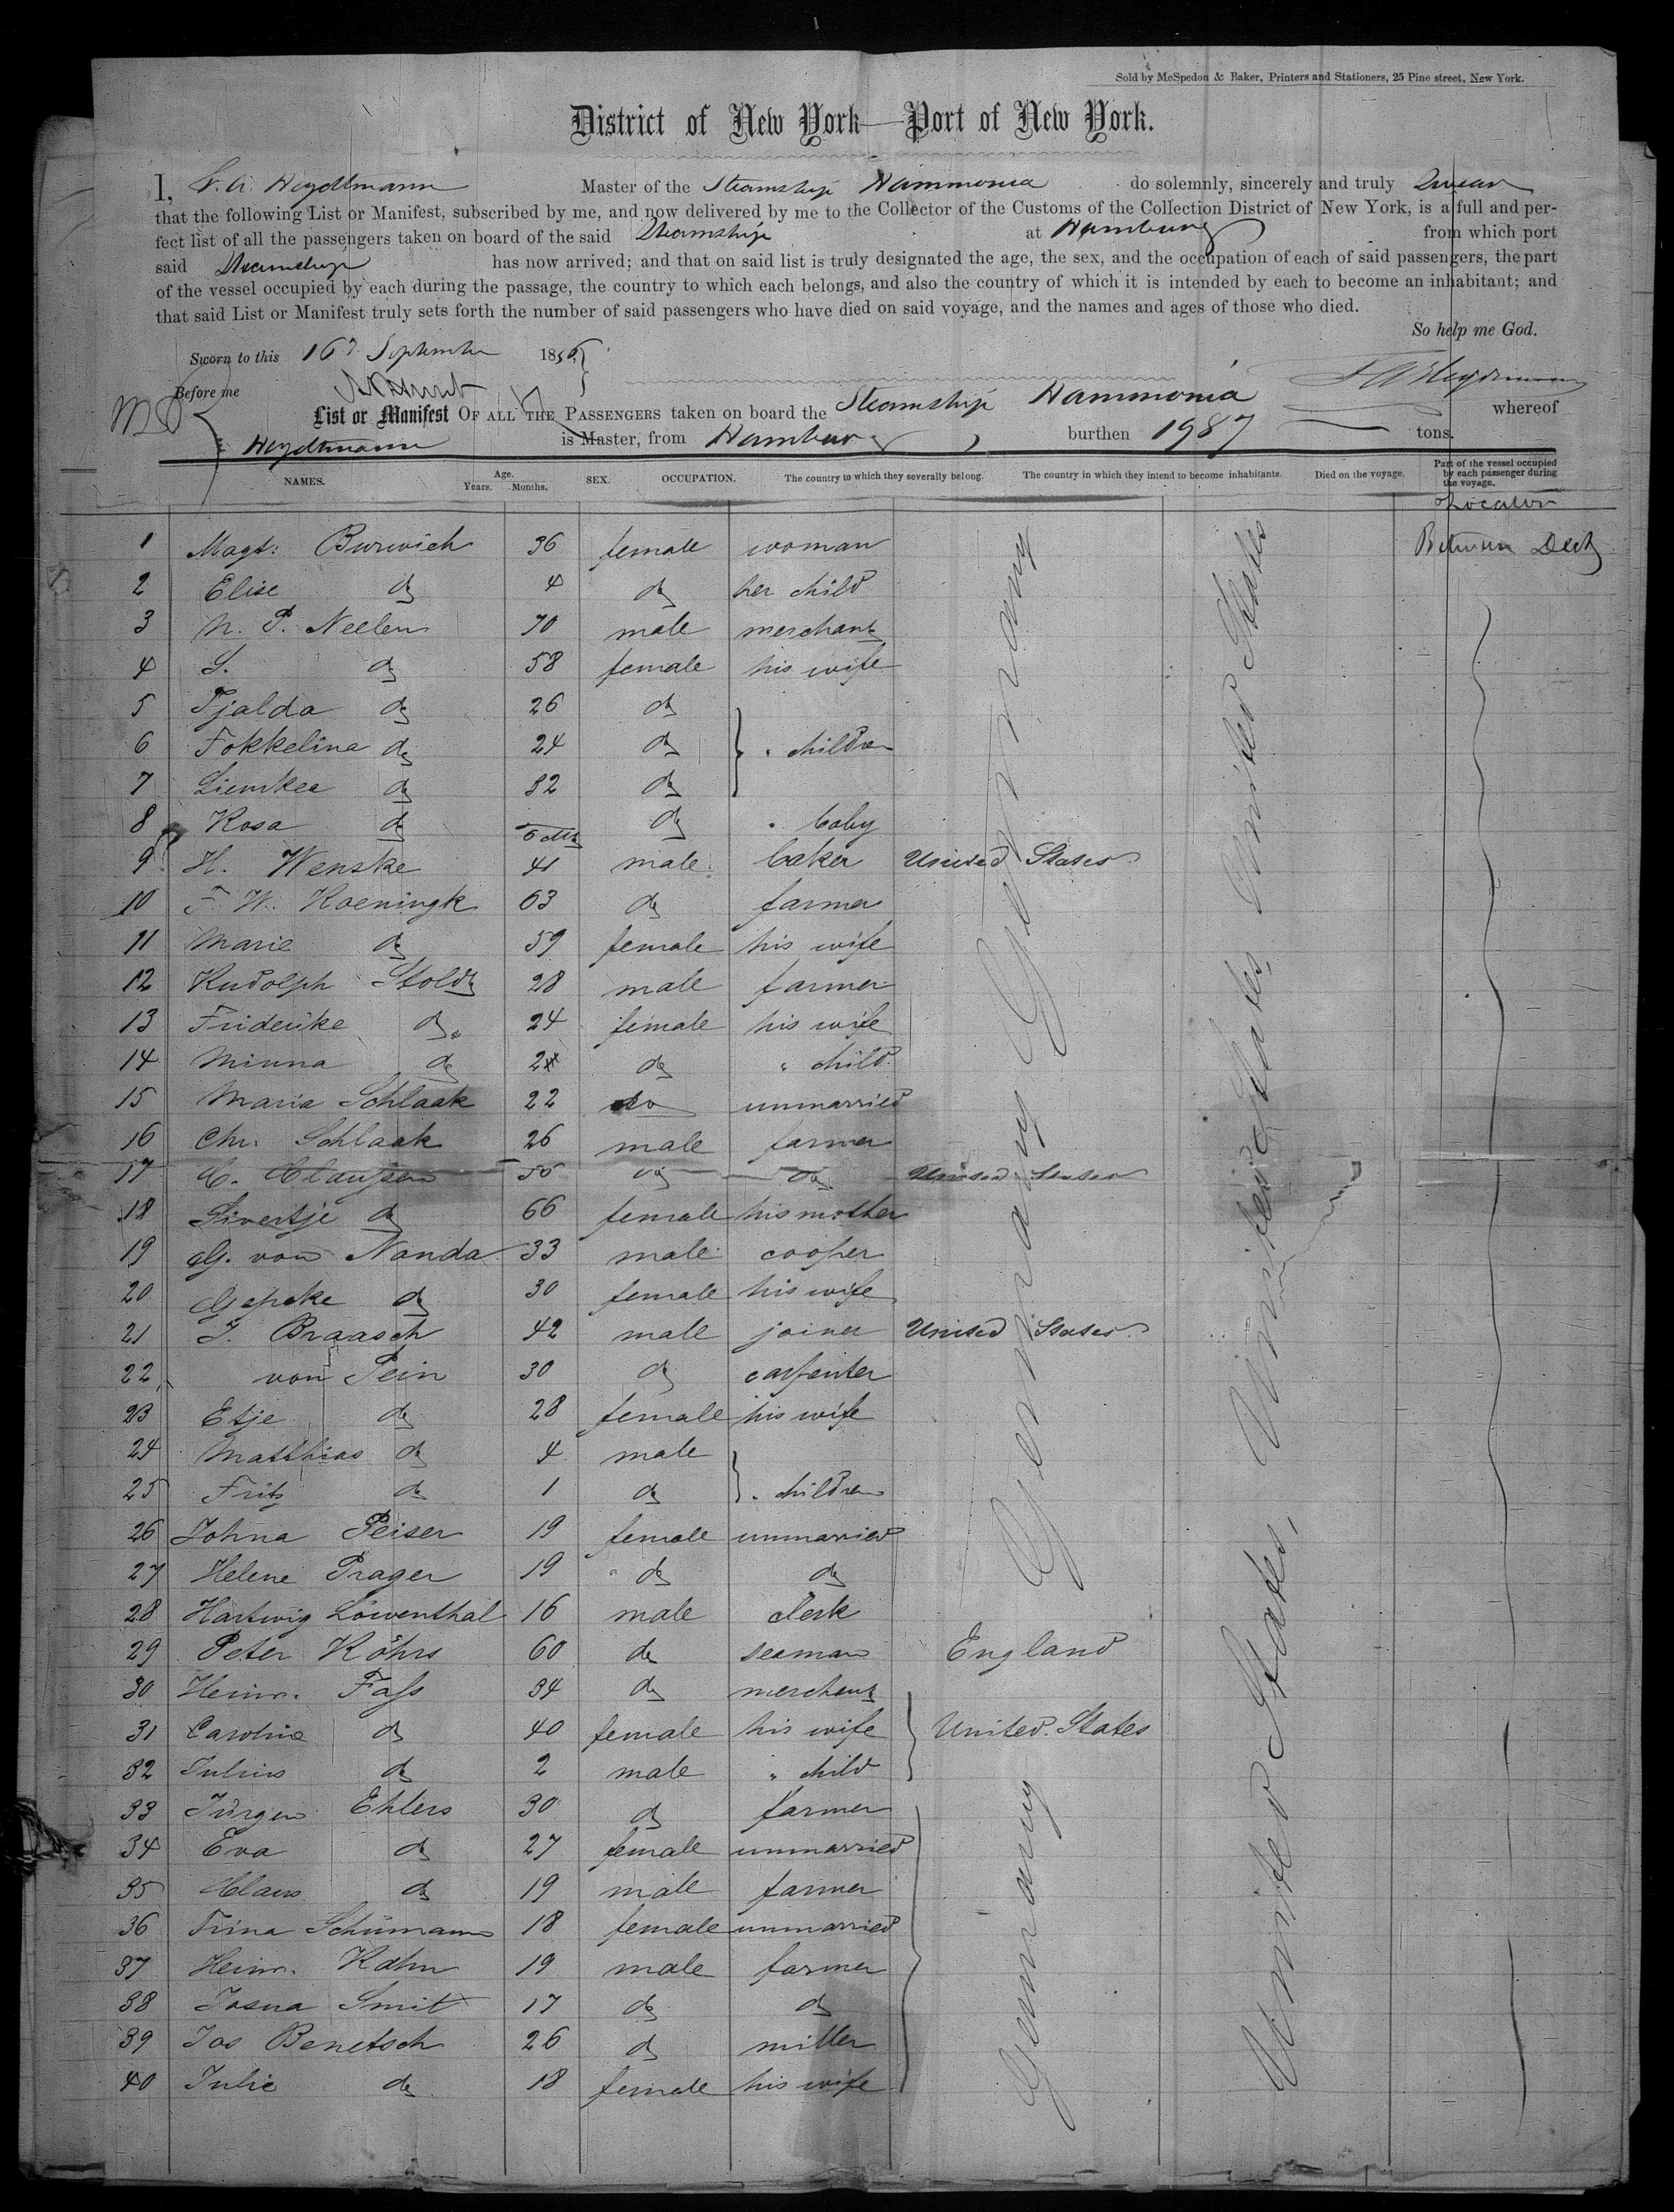 Sold by McSpedon & Baker, Printers and Stationers, 25 Pine street, New York.
District of New York—Port of New York.
I, Heydtmann Master of the Steamship Hammonia do solemnly, sincerely and truly swear
that the following List or Manifest, subscribed by me, and now delivered by me to the Collector of the Customs of the Collection District of New York, is a full and per-
fect list of all the passengers taken on board of the said Steamship at Hamburg from which port
said Steamship has now arrived; and that on said list is truly designated the age, the sex, and the occupation of each of said passengers, the part
of the vessel occupied by each during the passage, the country to which each belongs, and also the country of which it is intended by each to become an inhabitant; and
that said List or Manifest truly sets forth the number of said passengers who have died on said voyage, and the names and ages of those who died.
So help me God.
Sworn to this 16 September 1856
Before me
Heydtmann
List or Manifest OF ALL THE PASSENGERS taken on board the Steamship Hammonia whereof
Heydtmann is Master, from Hamburg burthen 1987 tons.
NAMES. Age. Years. Months. SEX. OCCUPATION. The country to which they severally belong. The country in which they intend to become inhabitants. Died on the voyage. Part of the vessel occupied by each passenger during the voyage.
Location
1 Magt: Burwich 36 female woman Between Deck
2 Elise do 4 do her child
3 N. P. Neelen 70 male merchant
4 S. do 58 female his wife
5 Tjalda do 26 do
6 Fokkelina do 24 do " children
7 Siemkea do 32 do
8 Rosa do 6 Mts do " baby
9 H. Wenske 41 male baker United States
10 F. W. Koeningk 63 do farmer
11 Marie do 59 female his wife
12 Rudolph Stoldt 28 male farmer
13 Friderike do 24 female his wife
14 Minna do 2 do " child
15 Maria Schlaak 22 do unmarried
16 Chr. Schlaak 26 male farmer
17 C. Claussen do do United States
18 Sivertje do 66 female his mother
19 G. von Nanda 33 male cooper
20 Gepcke do 30 female his wife
21 J. Braasch 42 male joiner United States
22 von Pein 30 do carpenter
23 Etje do 28 female his wife
24 Matthias do 4 male
25 Fritz do 1 do " children
26 Johna Peiser 19 female unmarried
27 Helene Prager 19 do do
28 Hartwig Löwenthal 16 male clerk
29 Peter Köhrs 60 do seaman England
30 Heinr. Fass 34 do merchant
31 Caroline do 40 female his wife United States
32 Julius do 2 male " child
33 Jürgen Ehlers 30 do farmer
34 Eva do 27 female unmarried
35 Claus do 19 male farmer
36 Trina Schümann 18 female unmarried
37 Heinr. Kahn 19 male farmer
38 Josua Smit 17 do do
39 Jos Benetsch 26 do miller
40 Julie do 18 female his wife
Germany Germany Germany
United States United States, United States, United States